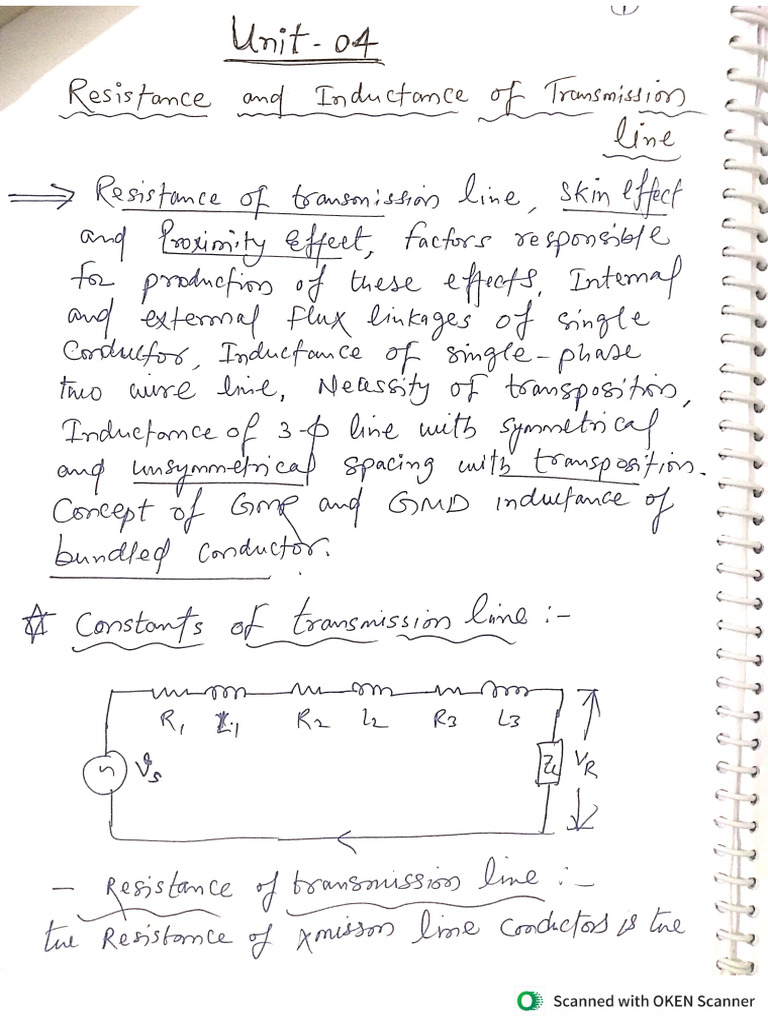 1
Unit - 04
Resistance and Inductance of Transmission
line
⇒ Resistance of transmission line, skin effect
and Proximity Effect, factors responsible
for production of these effects, Internal
and external flux linkages of single
Conductor, Inductance of single-phase
two wire line, Necessity of transposition,
Inductance of 3-ϕ line with symmetrical
and unsymmetrical spacing with transposition.
Concept of GMR and GMD inductance of
bundled conductor.
☆ Constants of transmission line :-
R1 L1 R2 L2 R3 L3
Vs ZL VR
- Resistance of transmission line :-
the Resistance of Xmisson line conductors is the
Scanned with OKEN Scanner